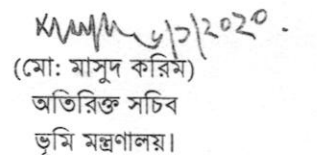 (মো: মাসুদ করিম)
অতিরিক্ত সচিব
ভূমি মন্ত্রণালয়।